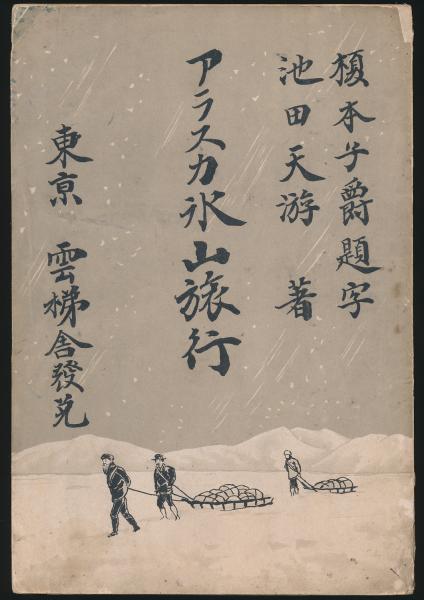 榎本子爵題字
池田天游 著
アラスカ氷山旅行
東京 雲梯舎發兌